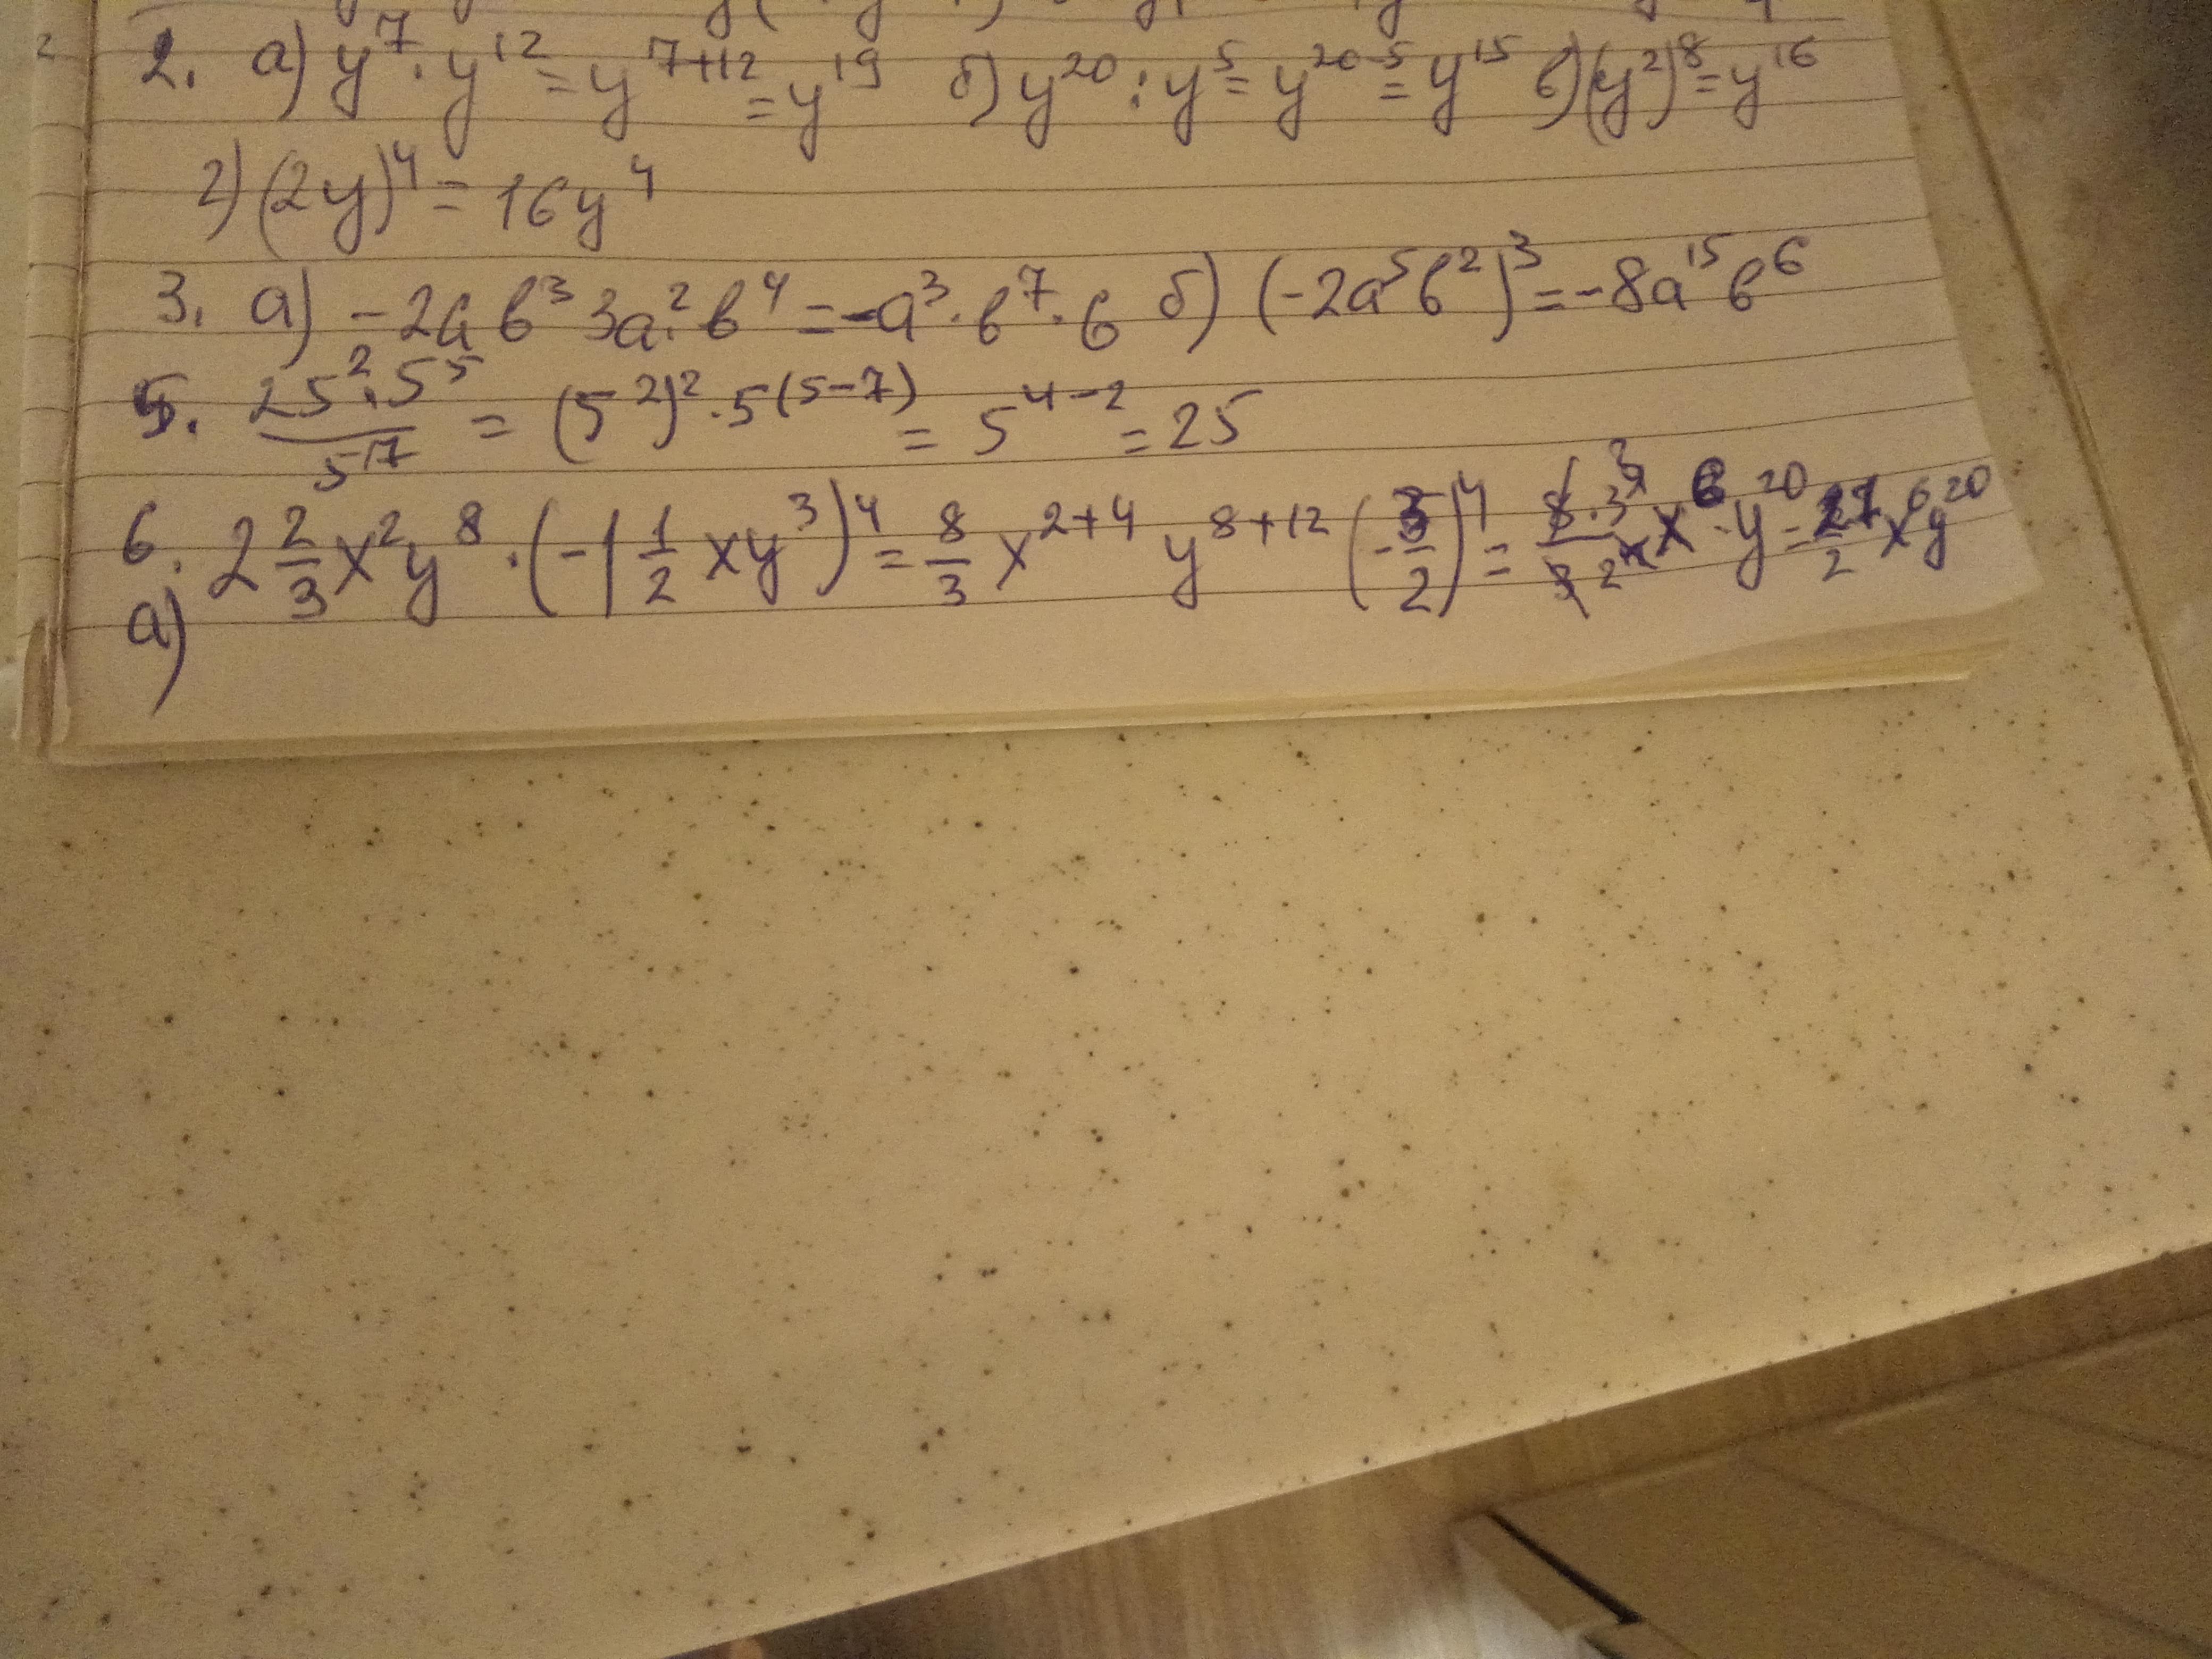 2. а) y⁷ · y¹² = y⁷⁺¹² = y¹⁹ б) y²⁰ : y⁵ = y²⁰⁻⁵ = y¹⁵ в) (y²)⁸ = y¹⁶
г) (2y)⁴ = 16y⁴
3. а) -2ab³ 3a² · b⁴ = -a³ · b⁷ · 6 б) (-2a⁵b²)³ = -8a¹⁵b⁶
5. 25² · 5⁵ / 5⁷ = (5²)² · 5⁽⁵⁻⁷⁾ = 5⁴⁻² = 25
6. а) 2 2/3 x²y⁸ · (-1 1/2 xy³)⁴ = 8/3 x²⁺⁴ y⁸⁺¹² (-3/2)⁴ = x⁶ · y²⁰ = 27/2 x⁶y²⁰